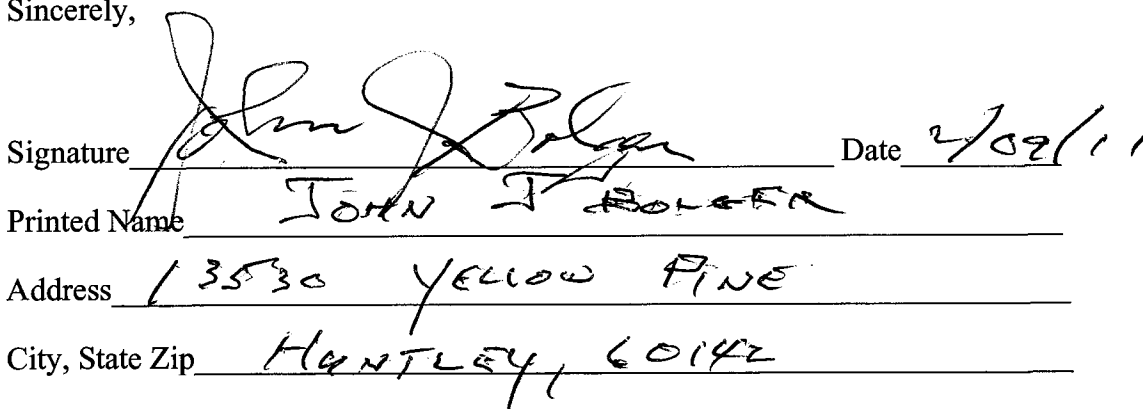 Sincerely,
Signature John J Bolger Date 2/09/11
Printed Name John J BOLGER
Address 13530 YELLOW PINE
City, State Zip HUNTLEY, 60142